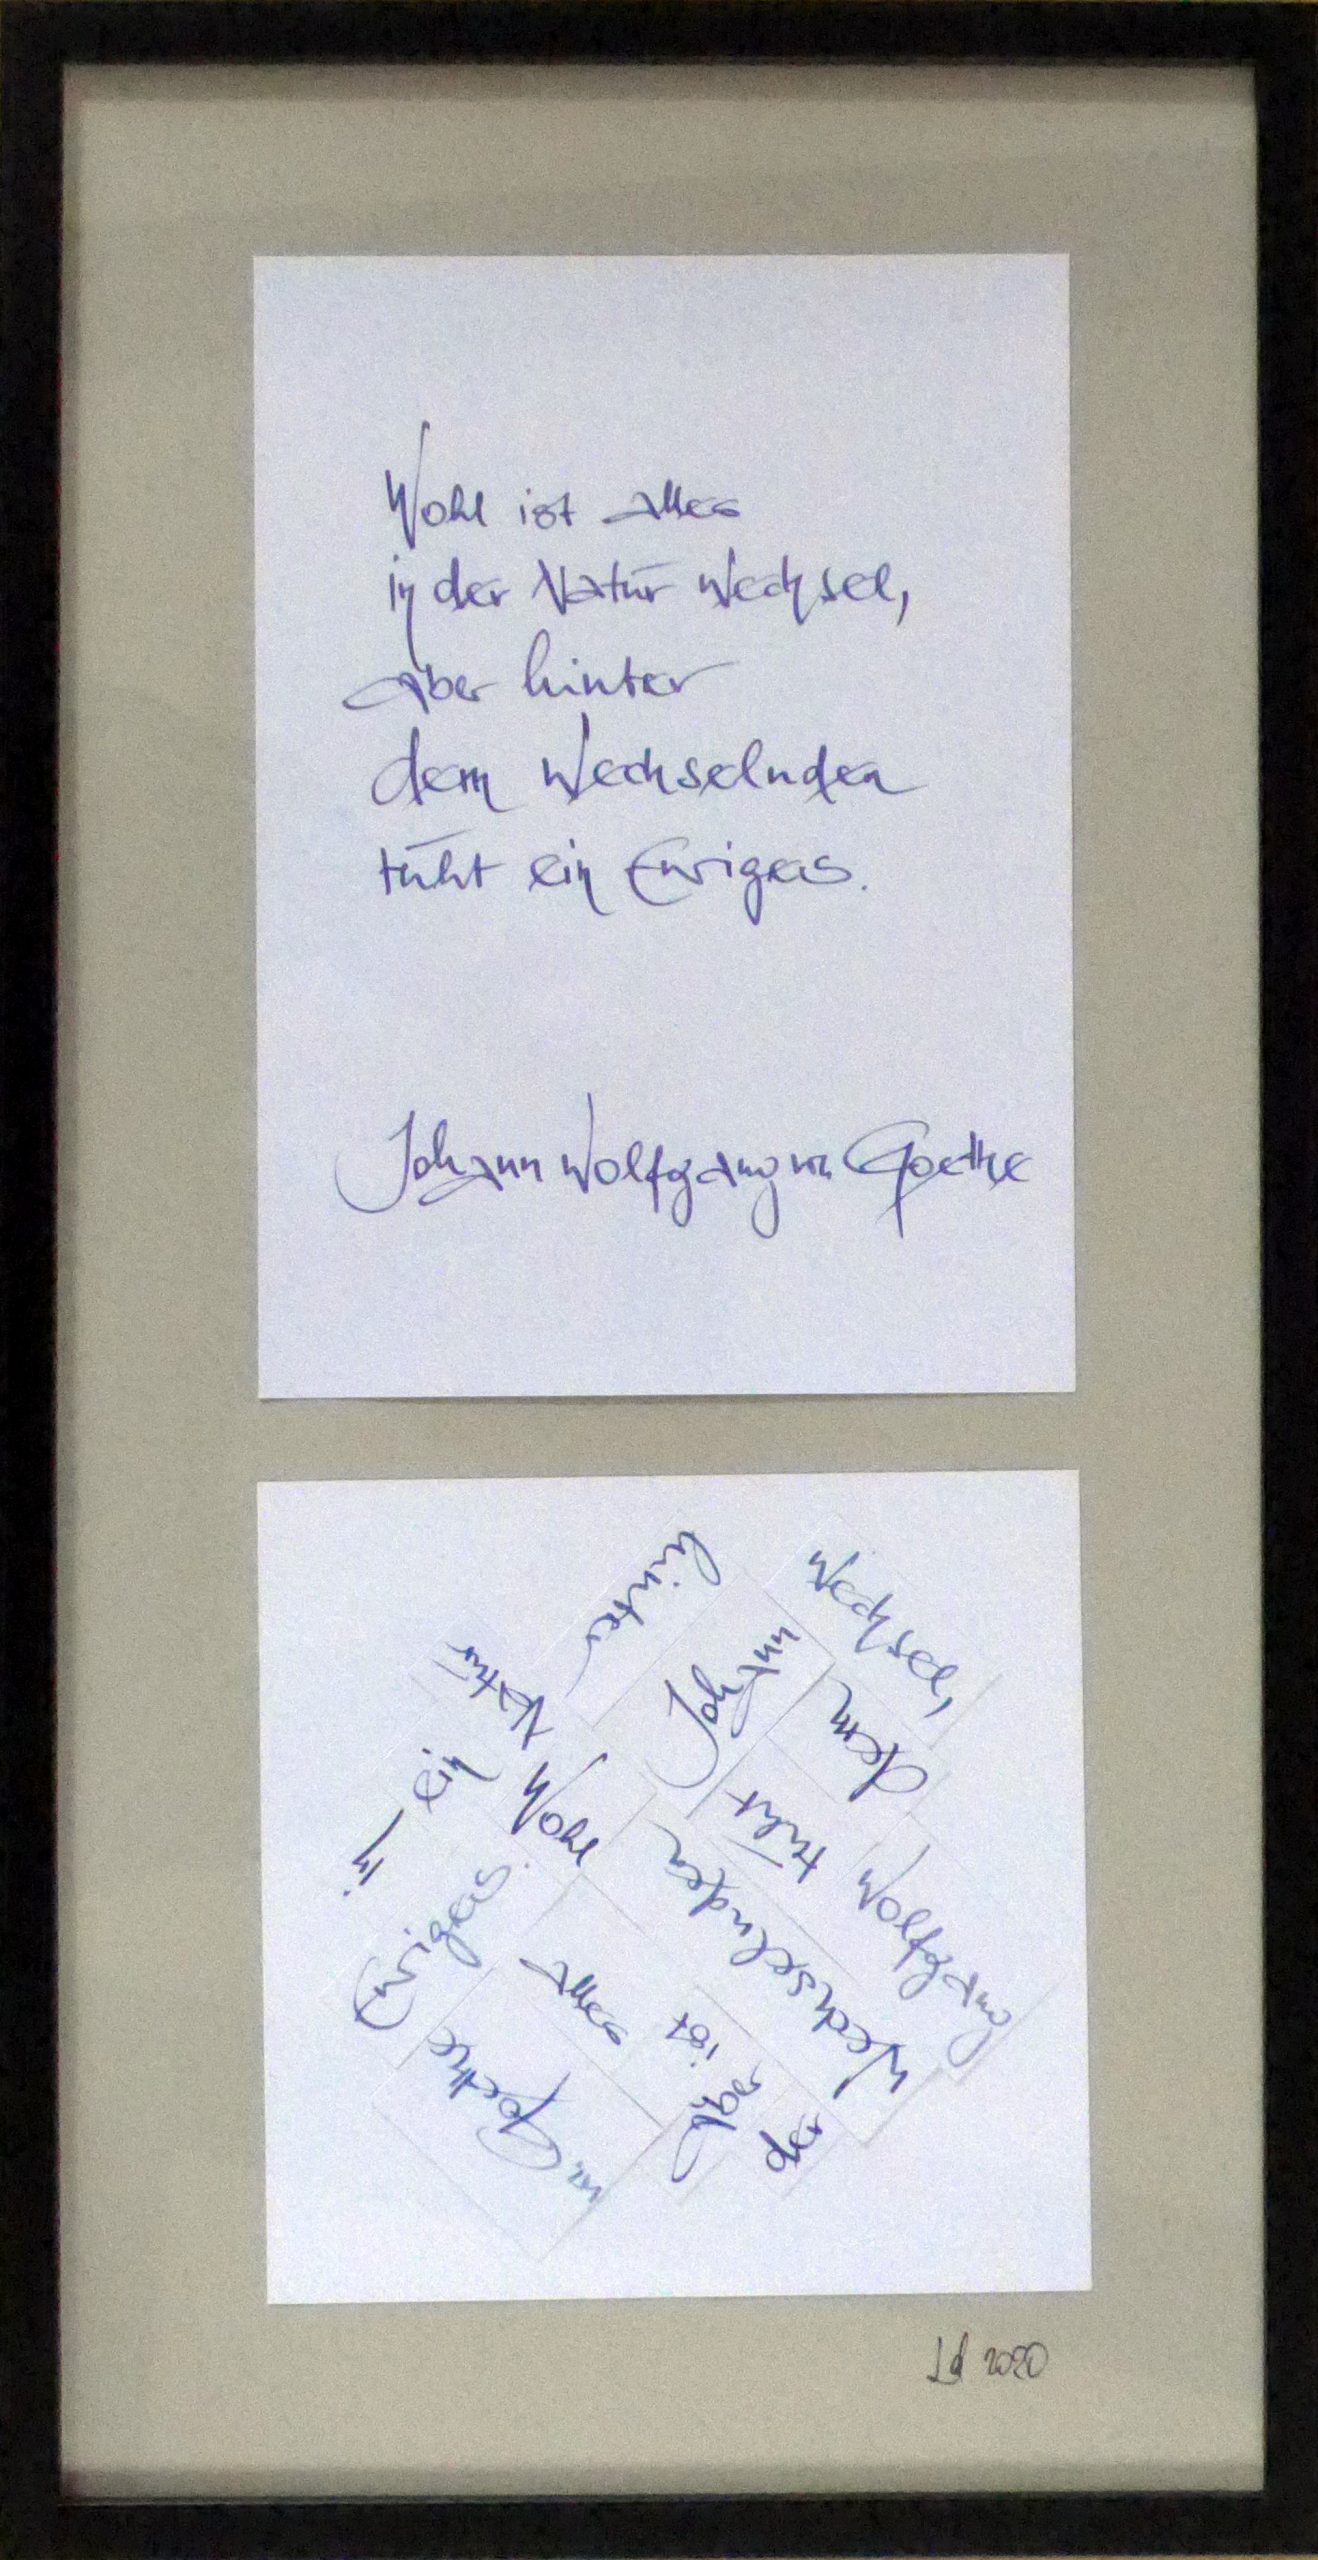 Wohl ist alles
in der Natur Wechsel,
aber hinter
dem Wechselnden
ruht ein Ewiges.
Johann Wolfgang von Goethe
hinter
Wechsel,
Johann
dem
Natur
ein
Wohl
ruht
in
Wolfgang
Wechselnden
Ewiges.
alles
ist
aber
der
von Goethe
2020